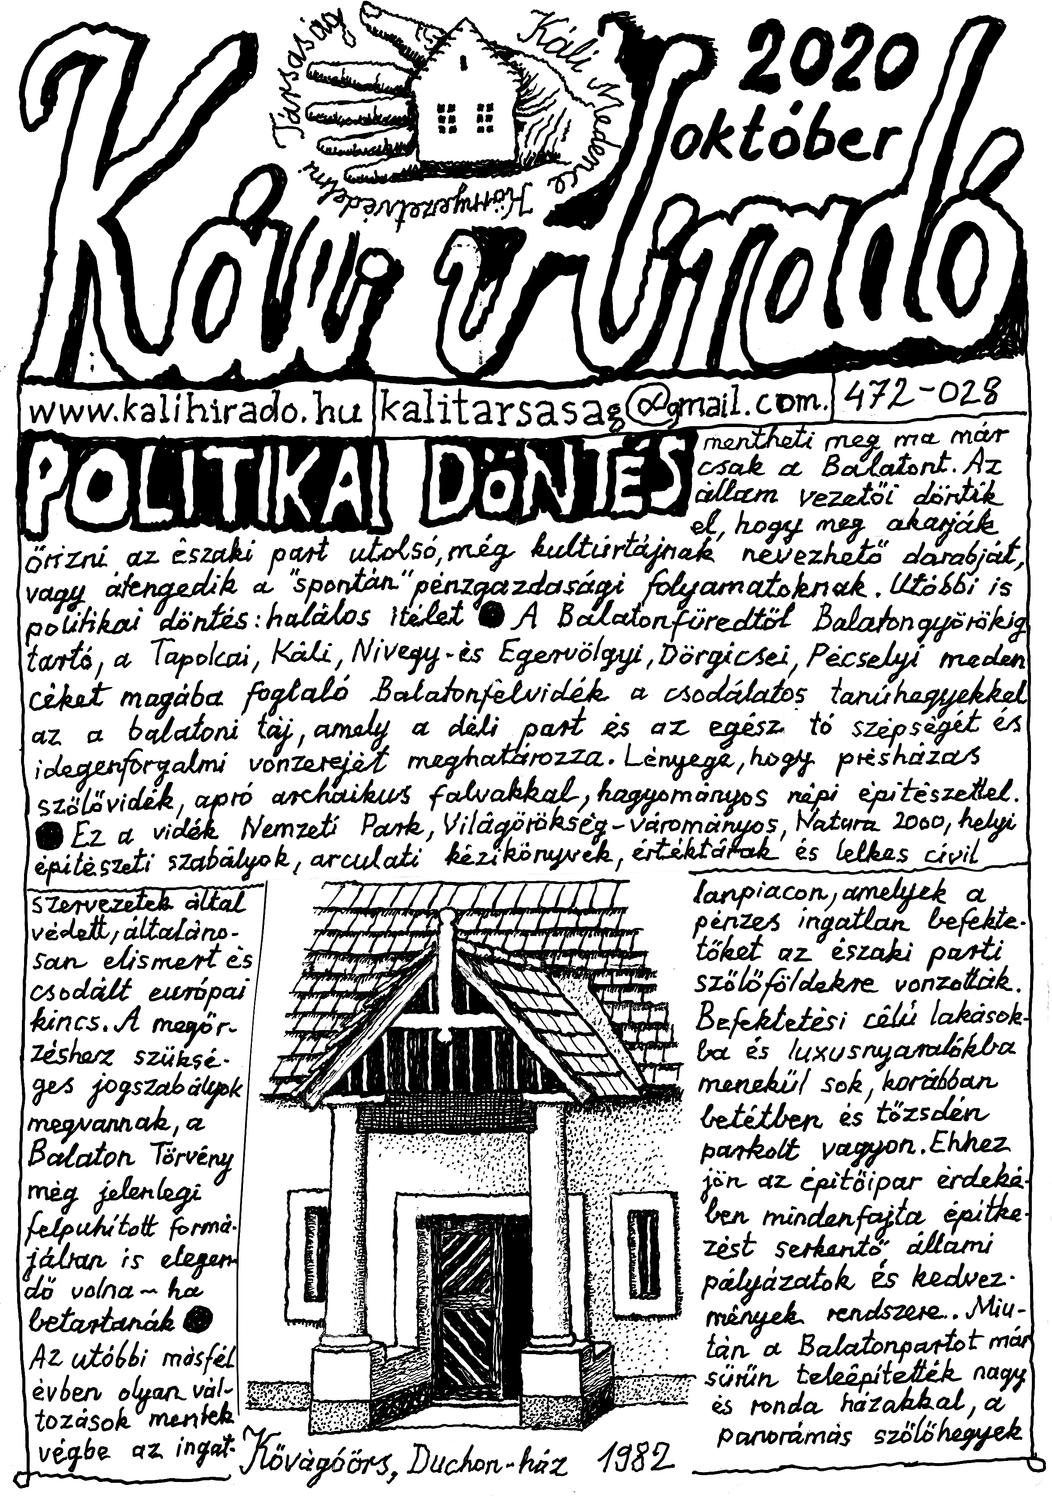 Káli Medence Környezetvédelmi Társaság
2020
október
Kávi Híradó
www.kalihirado.hu
kalitarsasag@gmail.com.
472-028
POLITIKAI DÖNTÉS
mentheti meg ma már
csak a Balatont. Az
állam vezetői döntik
el, hogy meg akarják
őrizni az északi part utolsó, még kultúrtájnak nevezhető darabját,
vagy átengedik a "spontán" pénzgazdasági folyamatoknak. Utóbbi is
politikai döntés: halálos ítélet ● A Balatonfüredtől Balatongyörökig
tartó, a Tapolcai, Káli, Nivegy-és Egervölgyi, Dörgicsei, Pécselyi meden
céket magába foglaló Balatonfelvidék a csodálatos tanúhegyekkel
az a balatoni táj, amely a déli part és az egész tó szépségét és
idegenforgalmi vonzerejét meghatározza. Lényege, hogy présházas
szőlővidék, apró archaikus falvakkal, hagyományos népi építészettel.
● Ez a vidék Nemzeti Park, Világörökség-várományos, Natura 2000, helyi
építészeti szabályok, arculati kézikönyvek, értéktárak és lelkes civil
szervezetek által
védett, általáno-
san elismert és
csodált európai
kincs. A megőr-
zéshez szüksé-
ges jogszabályok
megvannak, a
Balaton Törvény
még jelenlegi
felpuhított formá-
jában is elegen
dő volna - ha
betartanák ●
Az utóbbi másfél
évben olyan vál-
tozások mentek
végbe az ingat-
Kővágóörs, Duchon-ház 1982
lanpiacon, amelyek a
pénzes ingatlan befekte-
tőket az északi parti
szőlőföldekre vonzották.
Befektetési célú lakások-
ba és luxusnyaralókba
menekül sok, korábban
betétben és tőzsdén
parkolt vagyon. Ehhez
jön az építőipar érdeké-
ben mindenfajta építke-
zést serkentő állami
pályázatok és kedvez-
mények rendszere.. Miu-
tán a Balatonpartot már
sűrűn teleépítették nagy
és ronda házakkal, a
panorámás szőlőhegyek